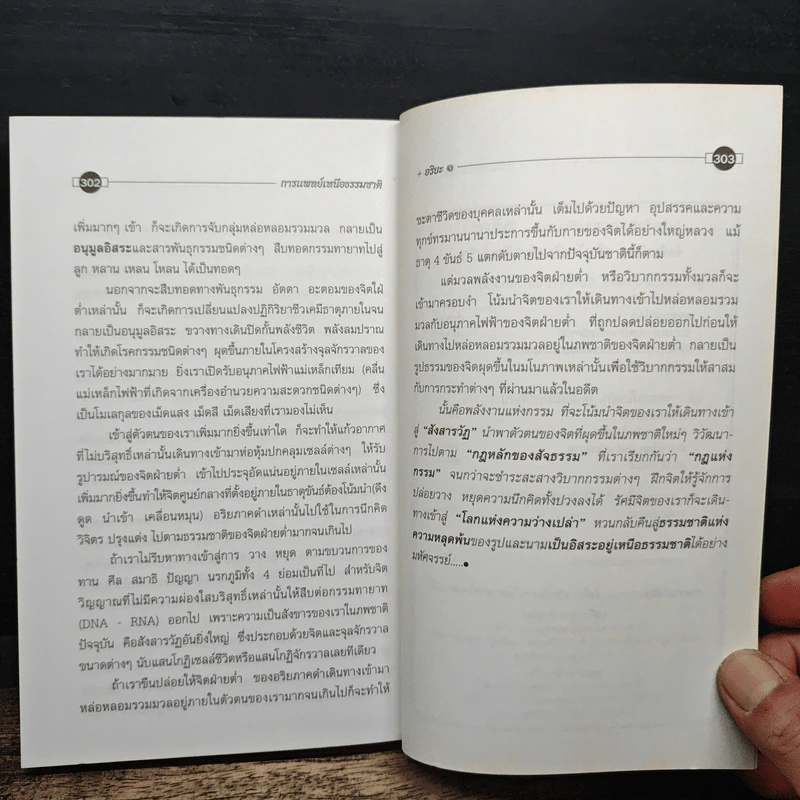 302
การแพทย์เหนือธรรมชาติ
เพิ่มมากๆ เข้า ก็จะเกิดการจับกลุ่มหล่อหลอมรวมมวล กลายเป็น
อนุมูลอิสระและสารพันธุกรรมชนิดต่างๆ สืบทอดกรรมทายาทไปสู่
ลูก หลาน เหลน โหลน ได้เป็นทอดๆ
นอกจากจะสืบทอดทางพันธุกรรม อัตตา อะตอมของจิตใฝ่
ต่ำเหล่านั้น ก็จะเกิดการเปลี่ยนแปลงปฏิกิริยาชีวเคมีธาตุภายในจน
กลายเป็นอนุมูลอิสระ ขวางทางเดินปิดกั้นพลังชีวิต พลังลมปราณ
ทำให้เกิดโรคกรรมชนิดต่างๆ ผุดขึ้นภายในโครงสร้างจุลจักรวาลของ
เราได้อย่างมากมาย ยิ่งเราเปิดรับอนุภาคไฟฟ้าแม่เหล็กเทียม (คลื่น
แม่เหล็กไฟฟ้าที่เกิดจากเครื่องอำนวยความสะดวกชนิดต่างๆ) ซึ่ง
เป็นโมเลกุลของเม็ดแสง เม็ดสี เม็ดเสียงที่เรามองไม่เห็น
เข้าสู่ตัวตนของเราเพิ่มมากยิ่งขึ้นเท่าใด ก็จะทำให้แก้วอากาศ
ที่ไม่บริสุทธิ์เหล่านั้นเดินทางเข้ามาห่อหุ้มปกคลุมเซลล์ต่างๆ ให้รับ
รูปารมณ์ของจิตฝ่ายต่ำ เข้าไปประจุอัดแน่นอยู่ภายในเซลล์เหล่านั้น
เพิ่มมากยิ่งขึ้นทำให้จิตศูนย์กลางที่ตั้งอยู่ภายในธาตุขันธ์ต้องโน้มนำ(ดึง
ดูด นำเข้า เคลื่อนหมุน) อริยภาคดำเหล่านั้นไปใช้ในการนึกคิด
วิจิตร ปรุงแต่ง ไปตามธรรมชาติของจิตฝ่ายต่ำมากจนเกินไป
ถ้าเราไม่รีบหาทางเข้าสู่การ วาง หยุด ตามขบวนการของ
ทาน ศีล สมาธิ ปัญญา นรกภูมิทั้ง 4 ย่อมเป็นที่ไป สำหรับจิต
วิญญาณที่ไม่มีความผ่องใสบริสุทธิ์เหล่านั้นให้สืบต่อกรรมทายาท
(DNA - RNA) ออกไป เพราะความเป็นสังขารของเราในภพชาติ
ปัจจุบัน คือสังสารวัฏอันยิ่งใหญ่ ซึ่งประกอบด้วยจิตและจุลจักรวาล
ขนาดต่างๆ นับแสนโกฏิเซลล์ชีวิตหรือแสนโกฏิจักรวาลเลยทีเดียว
ถ้าเราขืนปล่อยให้จิตฝ่ายต่ำ ของอริยภาคดำเดินทางเข้ามา
หล่อหลอมรวมมวลอยู่ภายในตัวตนของเรามากจนเกินไปก็จะทำให้
+ อริยะ
303
ชะตาชีวิตของบุคคลเหล่านั้น เต็มไปด้วยปัญหา อุปสรรคและความ
ทุกข์ทรมานนานาประการขึ้นกับกายของจิตได้อย่างใหญ่หลวง แม้
ธาตุ 4 ขันธ์ 5 แตกดับตายไปจากปัจจุบันชาตินี้ก็ตาม
แต่มวลพลังงานของจิตฝ่ายต่ำ หรือวิบากกรรมทั้งมวลก็จะ
เข้ามาครอบงำ โน้มนำจิตของเราให้เดินทางเข้าไปหล่อหลอมรวม
มวลกับอนุภาคไฟฟ้าของจิตฝ่ายต่ำ ที่ถูกปลดปล่อยออกไปก่อนให้
เดินทางไปหล่อหลอมรวมมวลอยู่ในภพชาติของจิตฝ่ายต่ำ กลายเป็น
รูปธรรมของจิตผุดขึ้นในมโนภาพเหล่านั้นเพื่อใช้วิบากกรรมให้สาสม
กับการกระทำต่างๆ ที่ผ่านมาแล้วในอดีต
นั้นคือพลังงานแห่งกรรม ที่จะโน้มนำจิตของเราให้เดินทางเข้า
สู่ “สังสารวัฏ” นำพาตัวตนของจิตที่ผุดขึ้นในภพชาติใหม่ๆ วิวัฒนา-
การไปตาม “กฎหลักของสัจธรรม” ที่เราเรียกกันว่า “กฎแห่ง
กรรม” จนกว่าจะชำระสะสางวิบากกรรมต่างๆ ฝึกจิตให้รู้จักการ
ปล่อยวาง หยุดความนึกคิดทั้งปวงลงได้ รัศมีจิตของเราก็จะเดิน-
ทางเข้าสู่ “โลกแห่งความว่างเปล่า” หวนกลับคืนสู่ธรรมชาติแห่ง
ความหลุดพ้นของรูปและนามเป็นอิสระอยู่เหนือธรรมชาติได้อย่าง
มหัศจรรย์.....●